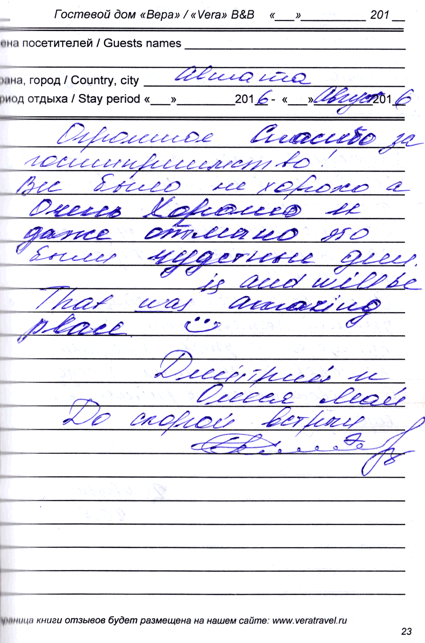 Гостевой дом «Вера» / «Vera» B&B «___»__________ 201__
ена посетителей / Guests names
рана, город / Country, city Алмата
риод отдыха / Stay period «___»________ 2016 - «___» Август 2016
Огромное Спасибо за
гостиприимство!
Все было не хорошо а
Очень Хорошо и
даже отлично это
были чудестные дни.
is and will be
That was amazing
place
Дмитрий и
Олеся Май
До скорой встречи
раница книги отзывов будет размещена на нашем сайте: www.veratravel.ru
23